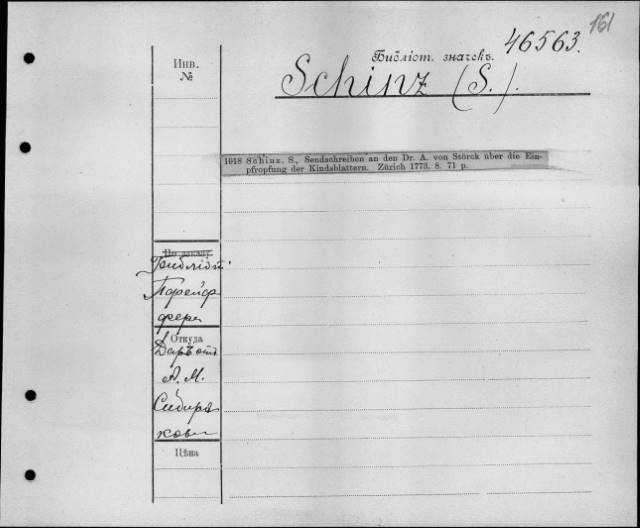 161
46563.
Библіот. значекъ.
Schinz (S.).
Инв.
№
1018 Schinz, S., Sendschreiben an den Dr. A. von Störck über die Ein-
pfropfung der Kindsblattern. Zürich 1773. 8. 71 p.
По докалу
Библіот.
Пфейф
фера
Откуда
Даръ отъ
А. М.
Сибиря
кова
Цѣна